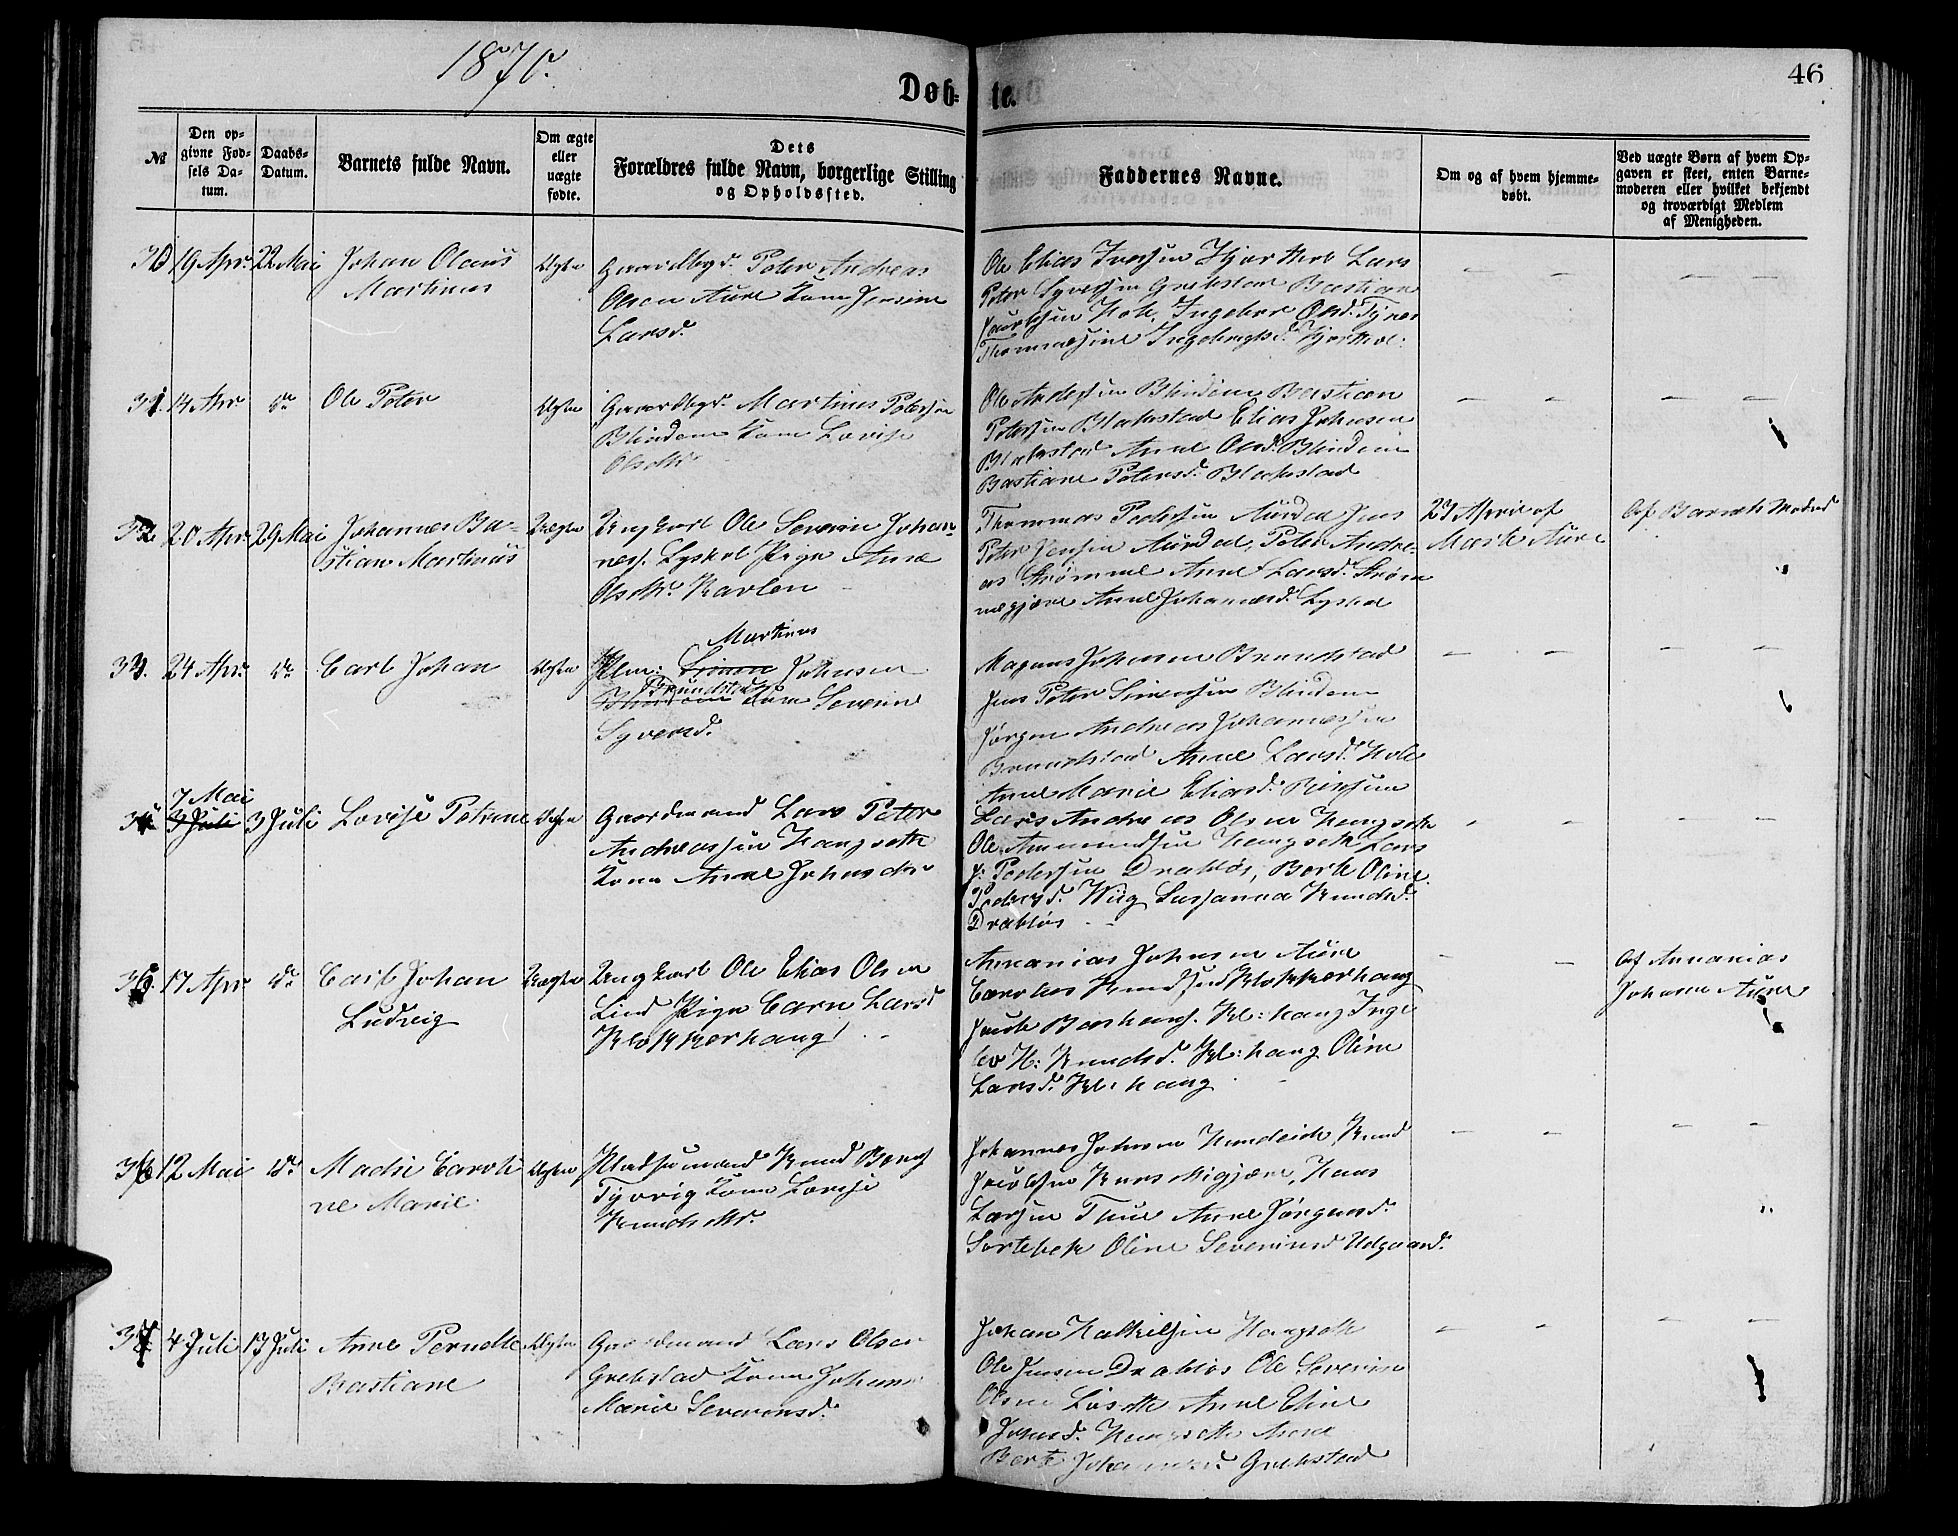 1870.
Døb-
te.
46
№
Den op-
givne Fød-
sels Da-
tum.
Daabs-
Datum.
Barnets fulde Navn.
Om ægte
eller
uægte
fødte.
Dets
Forældres fulde Navn, borgerlige Stilling
og Opholdssted.
Faddernes Navne.
Om og af hvem hjemme-
døbt.
Ved uægte Børn af hvem Op-
gaven er skeet, enten Barne-
moderen eller hvilket bekjendt
og troværdigt Medlem
af Menigheden.
30 19 Apr. 22 Mai Johan Olaus
Martinus
Ægte
Gaardbrgr. Peter Andreas
Olsen Aure Kone Jensine
Larsd.
Ole Elias Iversen Hjorthol Lars
Peter Syversen Grebstad Bastian
Hole, Ingebor Olsd. Tynes
Thommesine Ingebrigtsd. Hjorthol.
31. 14 Apr. do Ole Peter
Ægte
Gaardbrgr. Martinus Petersen
Blindem Kone Lovise
Olsdtr
Ole Andersen Blindem Bastian
Petersen Blakstad Elias Johnsen
Blakstad Anne Olsd. Blindem
Bastiane Petersd. Blakstad
32 20 Apr. 29 Mai Johannes Ba-
stian Martinus
Uægte
Ungkarl Ole Severin Johan-
nes. Lyshol Pige Ane
Olsdtr. Karlen
Thommas Pedersen Aurdal Jens
Peter Jensen Aurdal, Peter Andre-
as Strømme Anne Larsd. Strøm-
megjære Anne Johannesd. Lyshol
23 April af
Mark Aure
Af Barnets Moder
33. 24 Apr. do Carl Johan
Ægte
Martinus
Johnsen
Brundstad
Blindem Kone Severine
Syversd.
Magnus Johnsen Brundstad
Jens Peter Simensen Blindem
Jørgen Andreas Johannessen
Brundstad Anne Larsd. Hole
Anne Marie Eliasd.
7 Mai
34 3 Juli 3 Juli Lovise Petrine
Ægte
Gaardmand Lars Peter
Andreassen Haugseth
Kone Anne Johnsdtr
Lars Andreas Olsen Haugseth
Ole Ammundsen Haugseth Lars
J. Pedersen Drabløs, Berte Oline
Pedersd. Wiig Susanna Knudsd.
Drabløs
35 17 Apr do Carl Johan
Ludvig
Uægte
Ungkarl Ole Elias Olsen
Lind Pige Carn Larsd
Klokkerhaug
Annanias Johnsen Aure
Karolus Knudsen Klokkerhaug
Kl: haug Inge
bor H: Knudsd. Kl: haug Oline
Larsd. Kl: haug
Af Annanias
Johnsen Aure
36 12 Mai do Madsi Caroli
ne Marie
Ægte
Pladsemand Knud
Kone Lovise
Knudsdtr.
Johannes Johnsen Hundeide, Knud
Hans
Larsen Thue Anne Jørgensd.
Sortebek Oline Severinsd Udgaard.
37 4 Juli 13 Juli Anne Pernelle
Bastiane
Ægte
Gaardmand Lars Olsen
Grebstad Kone Johan
Marie Severensd.
Johan Haugseth
Ole Jensen Drabløs Ole Severin
Olsen Anne Eline
Johnsd. Haugseth Anne
Berte Johannesd Grebstad